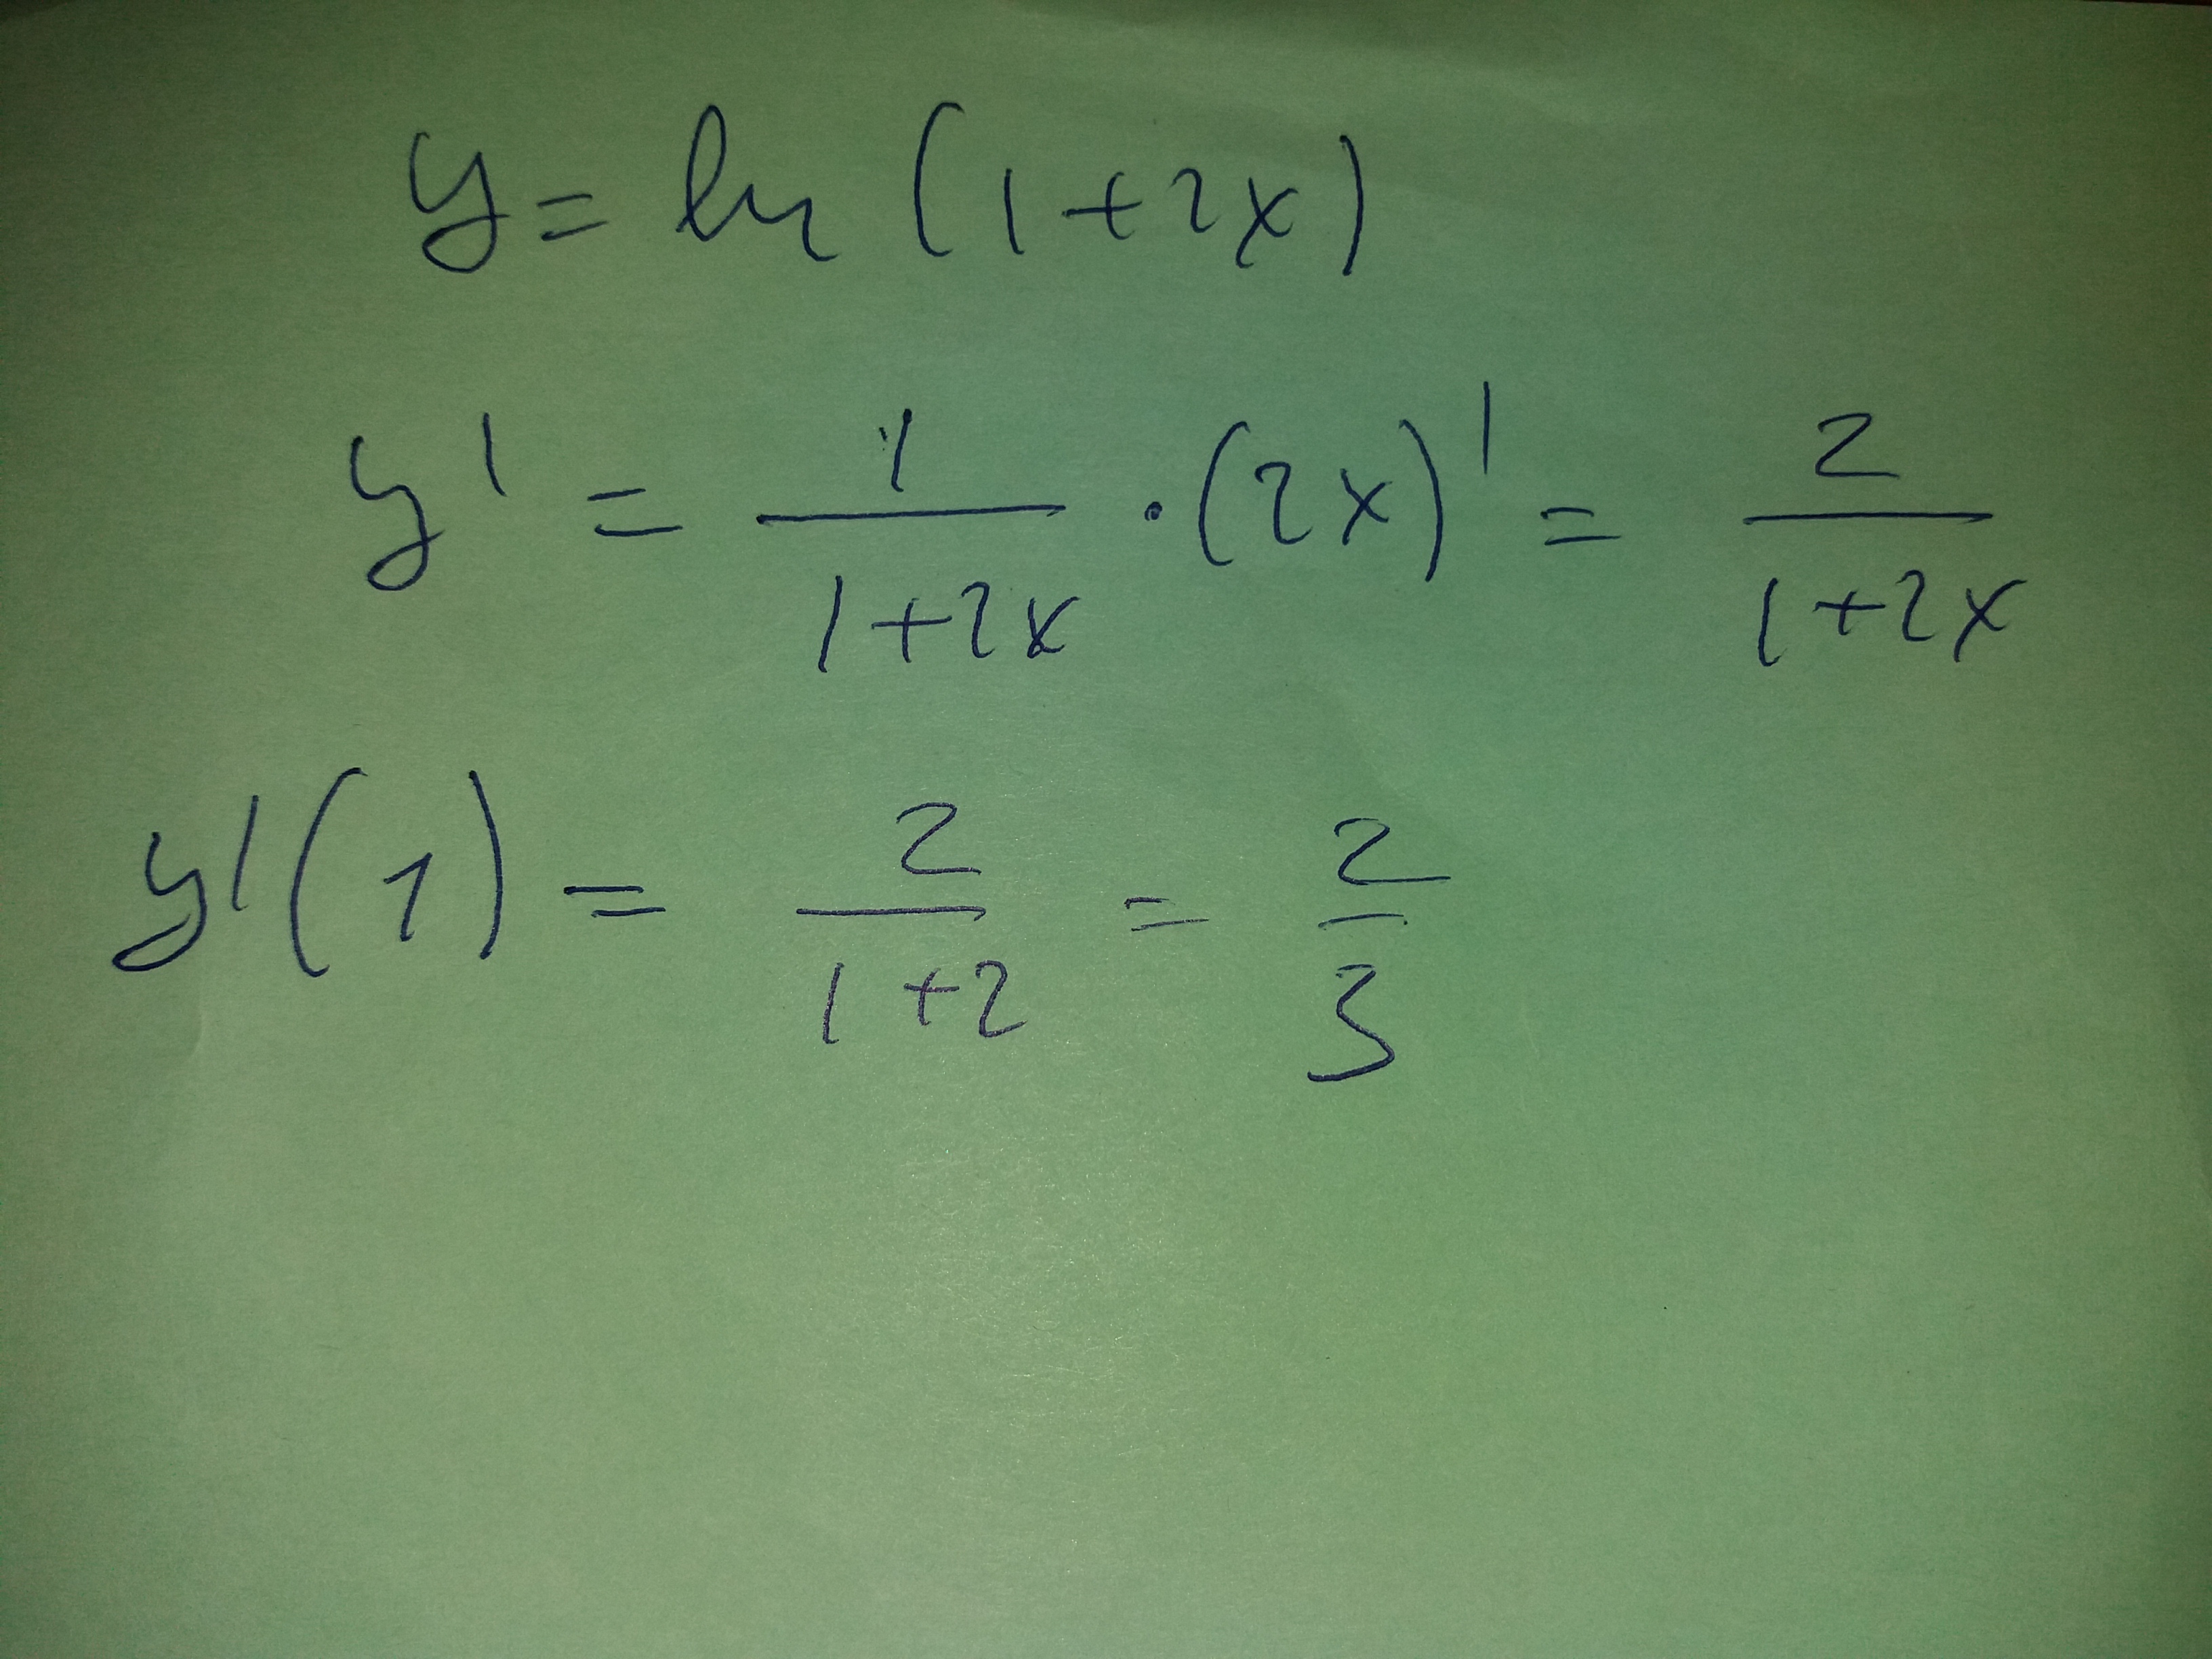 y = ln (1+2x)
y' = 1/(1+2x) · (2x)' = 2/(1+2x)
y'(1) = 2/(1+2) = 2/3